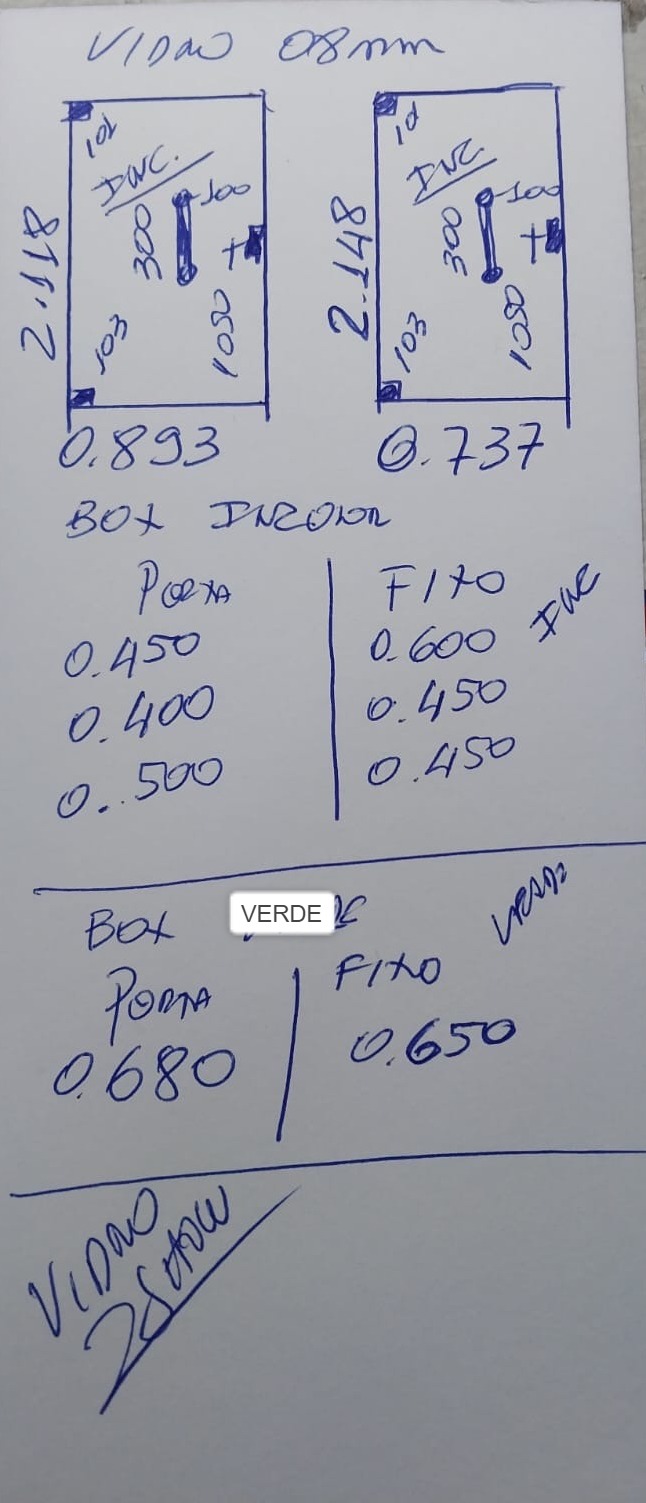 VIDRO 08mm
101
INC.
100
300
2.118
103
1050
0.893
10
INC
100
300
2.148
103
1050
0.737
BOX INCOLOR
PORTA
FIXO
INC
0.450
0.600
0.400
0.450
0.500
0.450
BOX VERDE
VERDE
PORTA
FIXO
0.680
0.650
VIDRO
SHOW